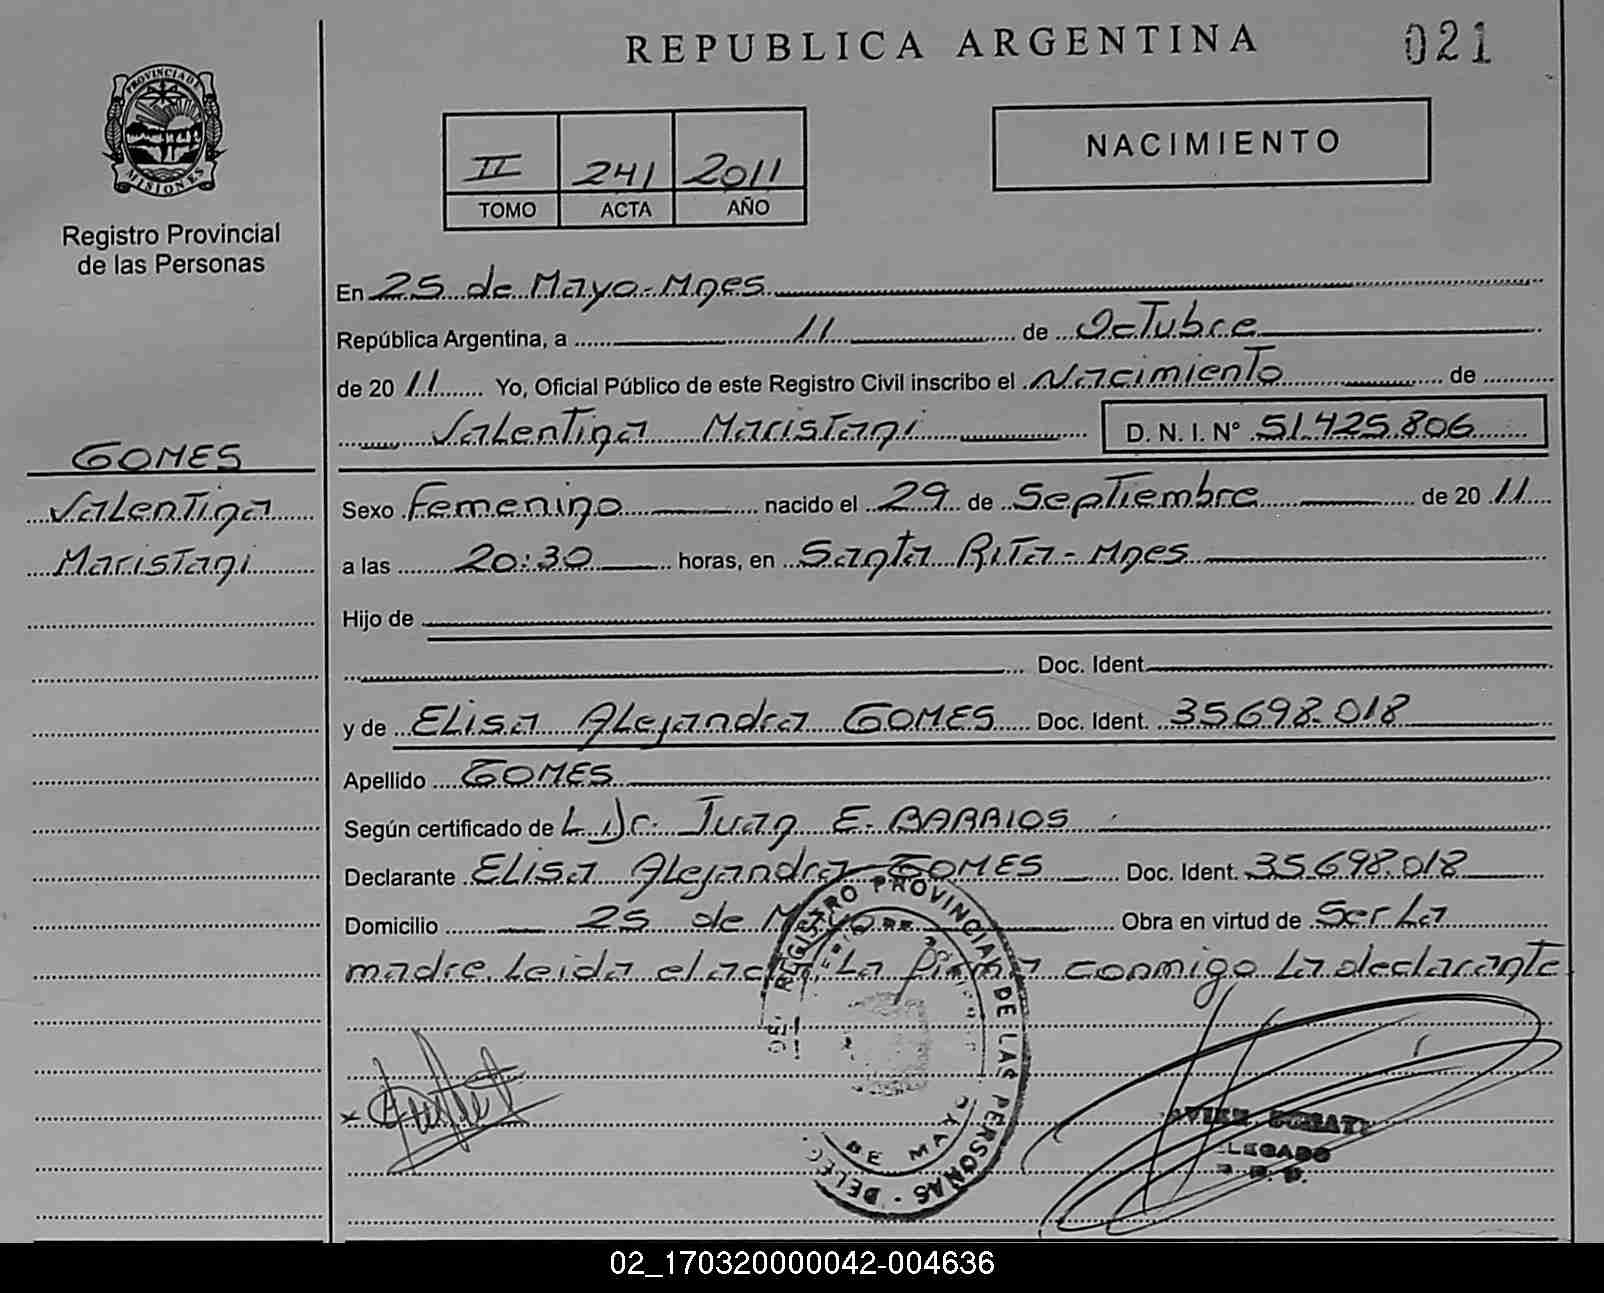 REPUBLICA ARGENTINA
021
PROVINCIA DE
MISIONES
Registro Provincial
de las Personas
II 241 2011
TOMO ACTA AÑO
NACIMIENTO
En 25 de Mayo-Mnes
República Argentina, a 11 de Octubre
de 20 11 Yo, Oficial Público de este Registro Civil inscribo el Nacimiento de
Valentina Maristani D. N. I. Nº 51.425.806
GOMES
Valentina
Maristani
Sexo Femenino nacido el 29 de Septiembre de 20 11
a las 20:30 horas, en Santa Rita-Mnes
Hijo de
Doc. Ident.
y de Elisa Alejandra GOMES Doc. Ident. 35.698.018
Apellido GOMES
Según certificado de L. Dr. Juan E. BARRIOS
Declarante Elisa Alejandra GOMES Doc. Ident. 35.698.018
Domicilio 25 de Mayo Obra en virtud de Ser La
madre Leida el acta, La firma conmigo La declarante
REGISTRO PROVINCIAL DE LAS PERSONAS - DELEG
DE MAYO
02_170320000042-004636